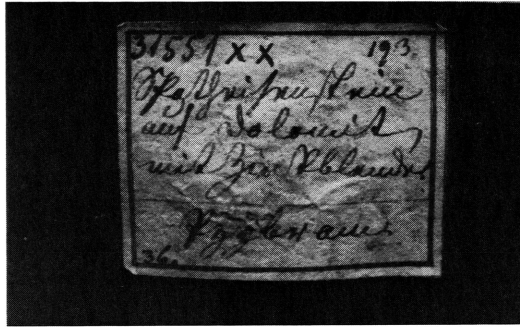 31551 x x 193.
Spatheisenstein
auf Dolomit,
mit Zinkblende.
Przibram.
36.